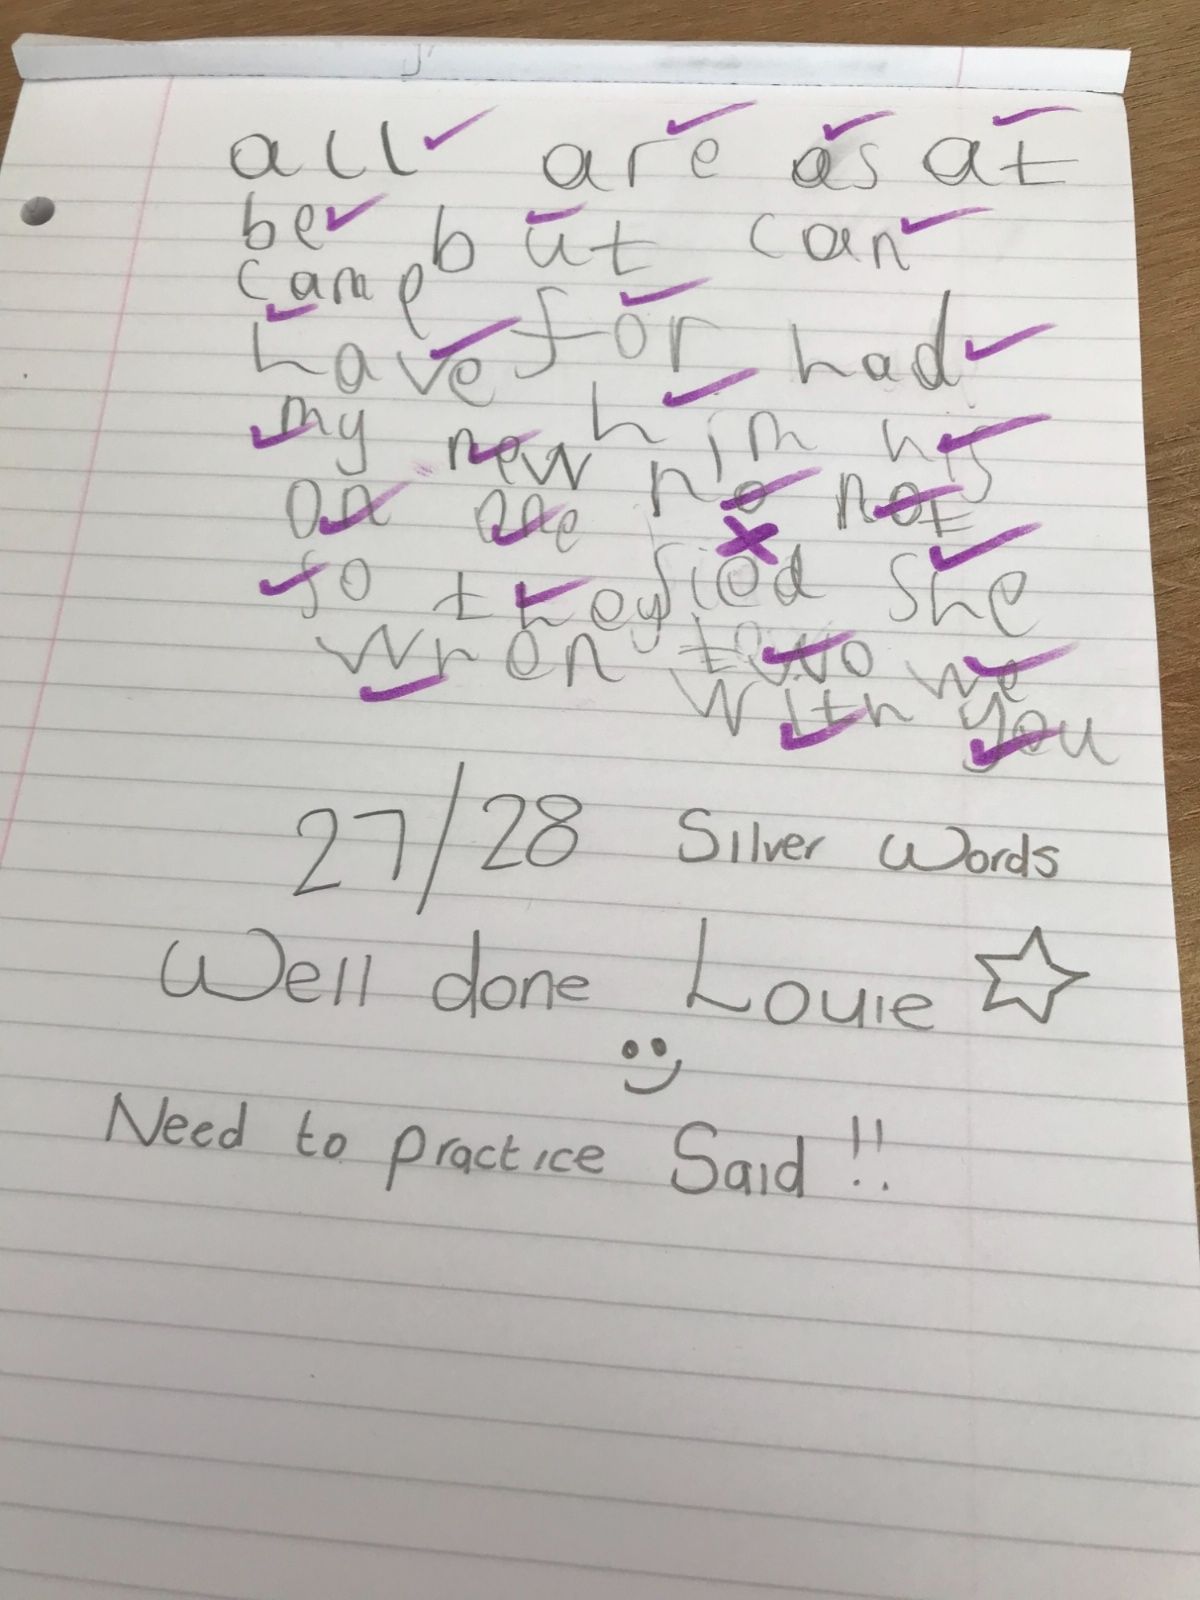 all are as at
be but can
came for had
have him his
my new no not
on one
so they sied she
when two we
with you
27/28 Silver Words
Well done Louie
Need to practice Said !!